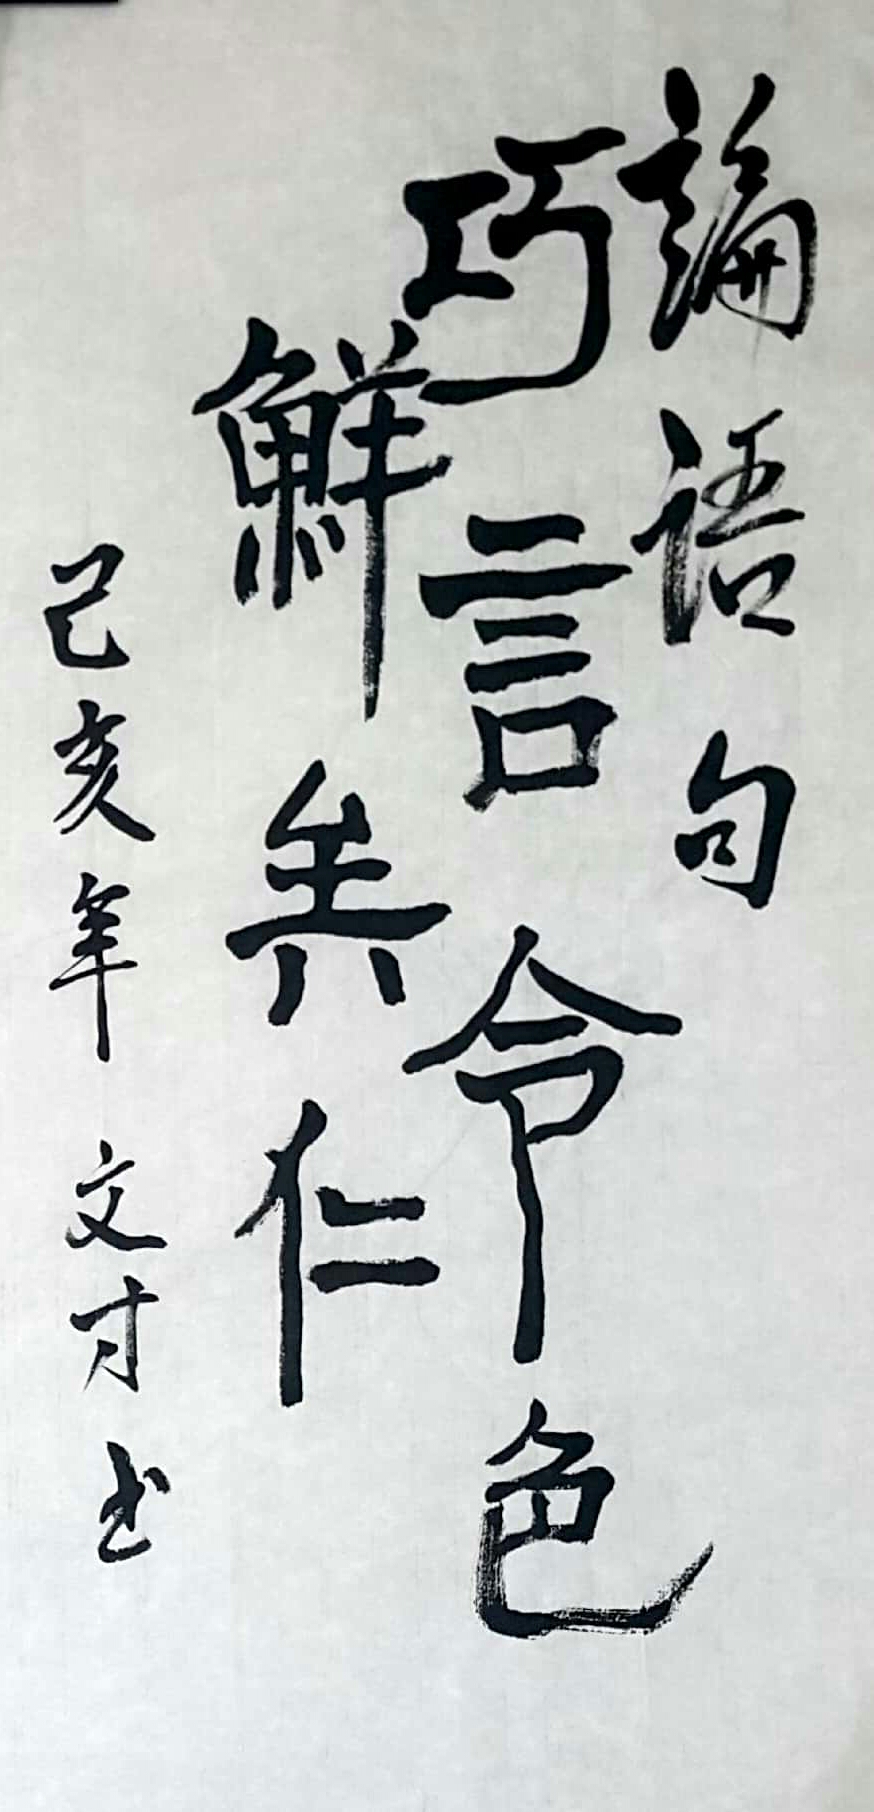 論语句
巧言令色
鮮矣仁
己亥年 文才书